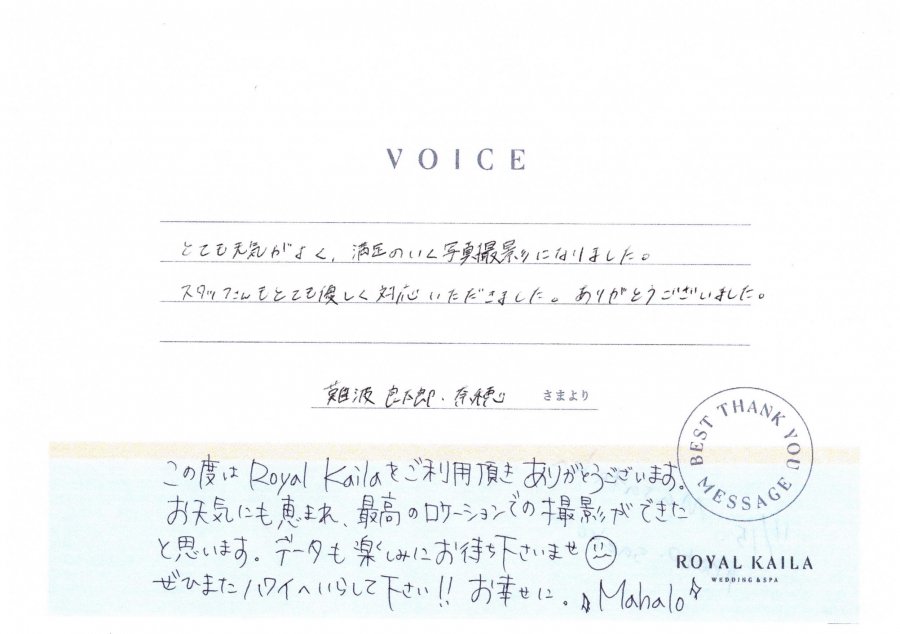 VOICE
とても天気がよく、満足のいく写真撮影になりました。
スタッフさんもとても優しく対応いただきました。ありがとうございました。
難波 良太郎・奈穂 さまより
BEST THANK YOU MESSAGE
この度は Royal Kailaをご利用頂き ありがとうございます。
お天気にも恵まれ、最高のロケーションでの撮影ができた
と思います。データも楽しみにお待ち下さいませ
ぜひまたハワイへいらして下さい!! お幸せに。Mahalo
ROYAL KAILA
WEDDING & SPA